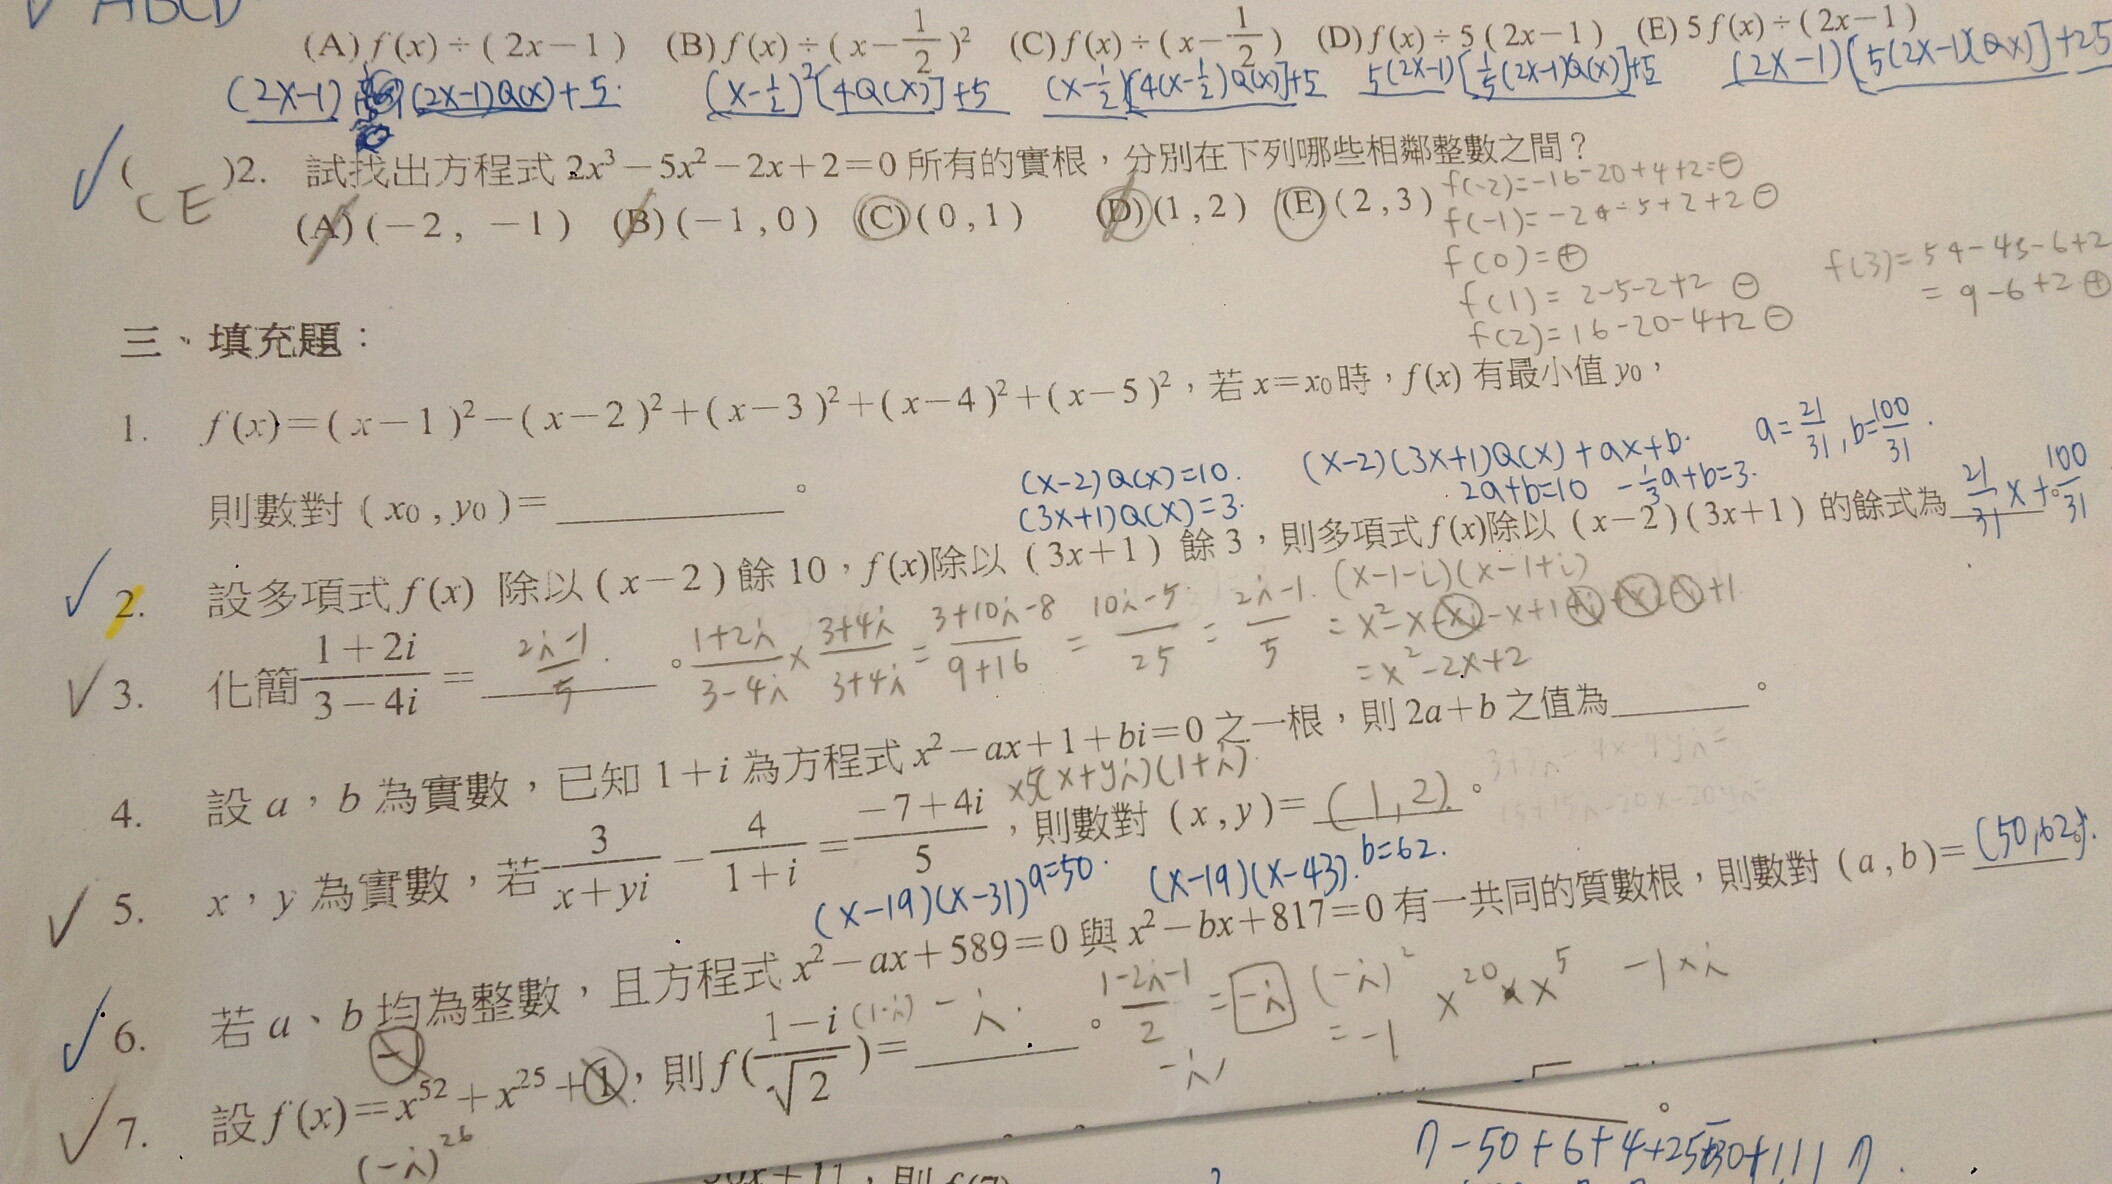 ABCD
(A) f(x)÷(2x−1) (B) f(x)÷(x−1/2)² (C) f(x)÷(x−1/2) (D) f(x)÷5(2x−1) (E) 5f(x)÷(2x−1)
(2x-1) (2x-1)Q(x)+5. (x-1/2)²[4Q(x)]+5 (x-1/2)[4(x-1/2)Q(x)]+5 5(2x-1)[1/5(2x-1)Q(x)]+5 (2x-1)[5(2x-1)Q(x)]+25
( CE )2. 試找出方程式 2x³−5x²−2x+2=0 所有的實根，分別在下列哪些相鄰整數之間？
(A)(−2, −1) (B)(−1,0) (C)(0,1) (D)(1,2) (E)(2,3)
f(-2)=-16-20+4+2=⊖
f(-1)=-2-5+2+2 ⊖
f(0)=⊕
f(1)=2-5-2+2 ⊖
f(2)=16-20-4+2 ⊖
f(3)=54-45-6+2
=9-6+2 ⊕
三、填充題：
1. f(x)=(x−1)²−(x−2)²+(x−3)²+(x−4)²+(x−5)²，若 x=x₀時，f(x) 有最小值 y₀，
則數對 (x₀,y₀)=＿＿＿。
(x-2)Q(x)=10.
(3x+1)Q(x)=3.
(x-2)(3x+1)Q(x)+ax+b.
2a+b=10 -1/3a+b=3.
a=21/31, b=100/31.
2. 設多項式 f(x) 除以 (x−2) 餘 10，f(x)除以 (3x+1) 餘 3，則多項式 f(x)除以 (x−2)(3x+1) 的餘式為 21/31x+100/31。
3. 化簡 (1+2i)/(3−4i) = (2i-1)/5。
(1+2i)/(3-4i)×(3+4i)/(3+4i)=(3+10i-8)/(9+16)=(10i-5)/25=(2i-1)/5
(x-1-i)(x-1+i)
=x²-x-xi-x+1+i+xi-i+1
=x²-2x+2
4. 設 a，b 為實數，已知 1+i 為方程式 x²−ax+1+bi=0 之一根，則 2a+b 之值為＿＿＿。
×5(x+yi)(1+i)
5. x，y 為實數，若 3/(x+yi) − 4/(1+i) = (−7+4i)/5，則數對 (x,y)= (1,2)。
(x-19)(x-31) a=50. (x-19)(x-43). b=62.
6. 若 a、b 均為整數，且方程式 x²−ax+589=0 與 x²−bx+817=0 有一共同的質數根，則數對 (a,b)= (50,62)。
7. 設 f(x)=x⁵²+x²⁵+1，則 f((1−i)/√2)= -i。
(1-i)
(1-2i-1)/2 = -i (-i)²
=-1
x²⁰×x⁵ -1×i
-i
(-i)²⁶
30x+11，則 f(7)
7-50+6+4+25